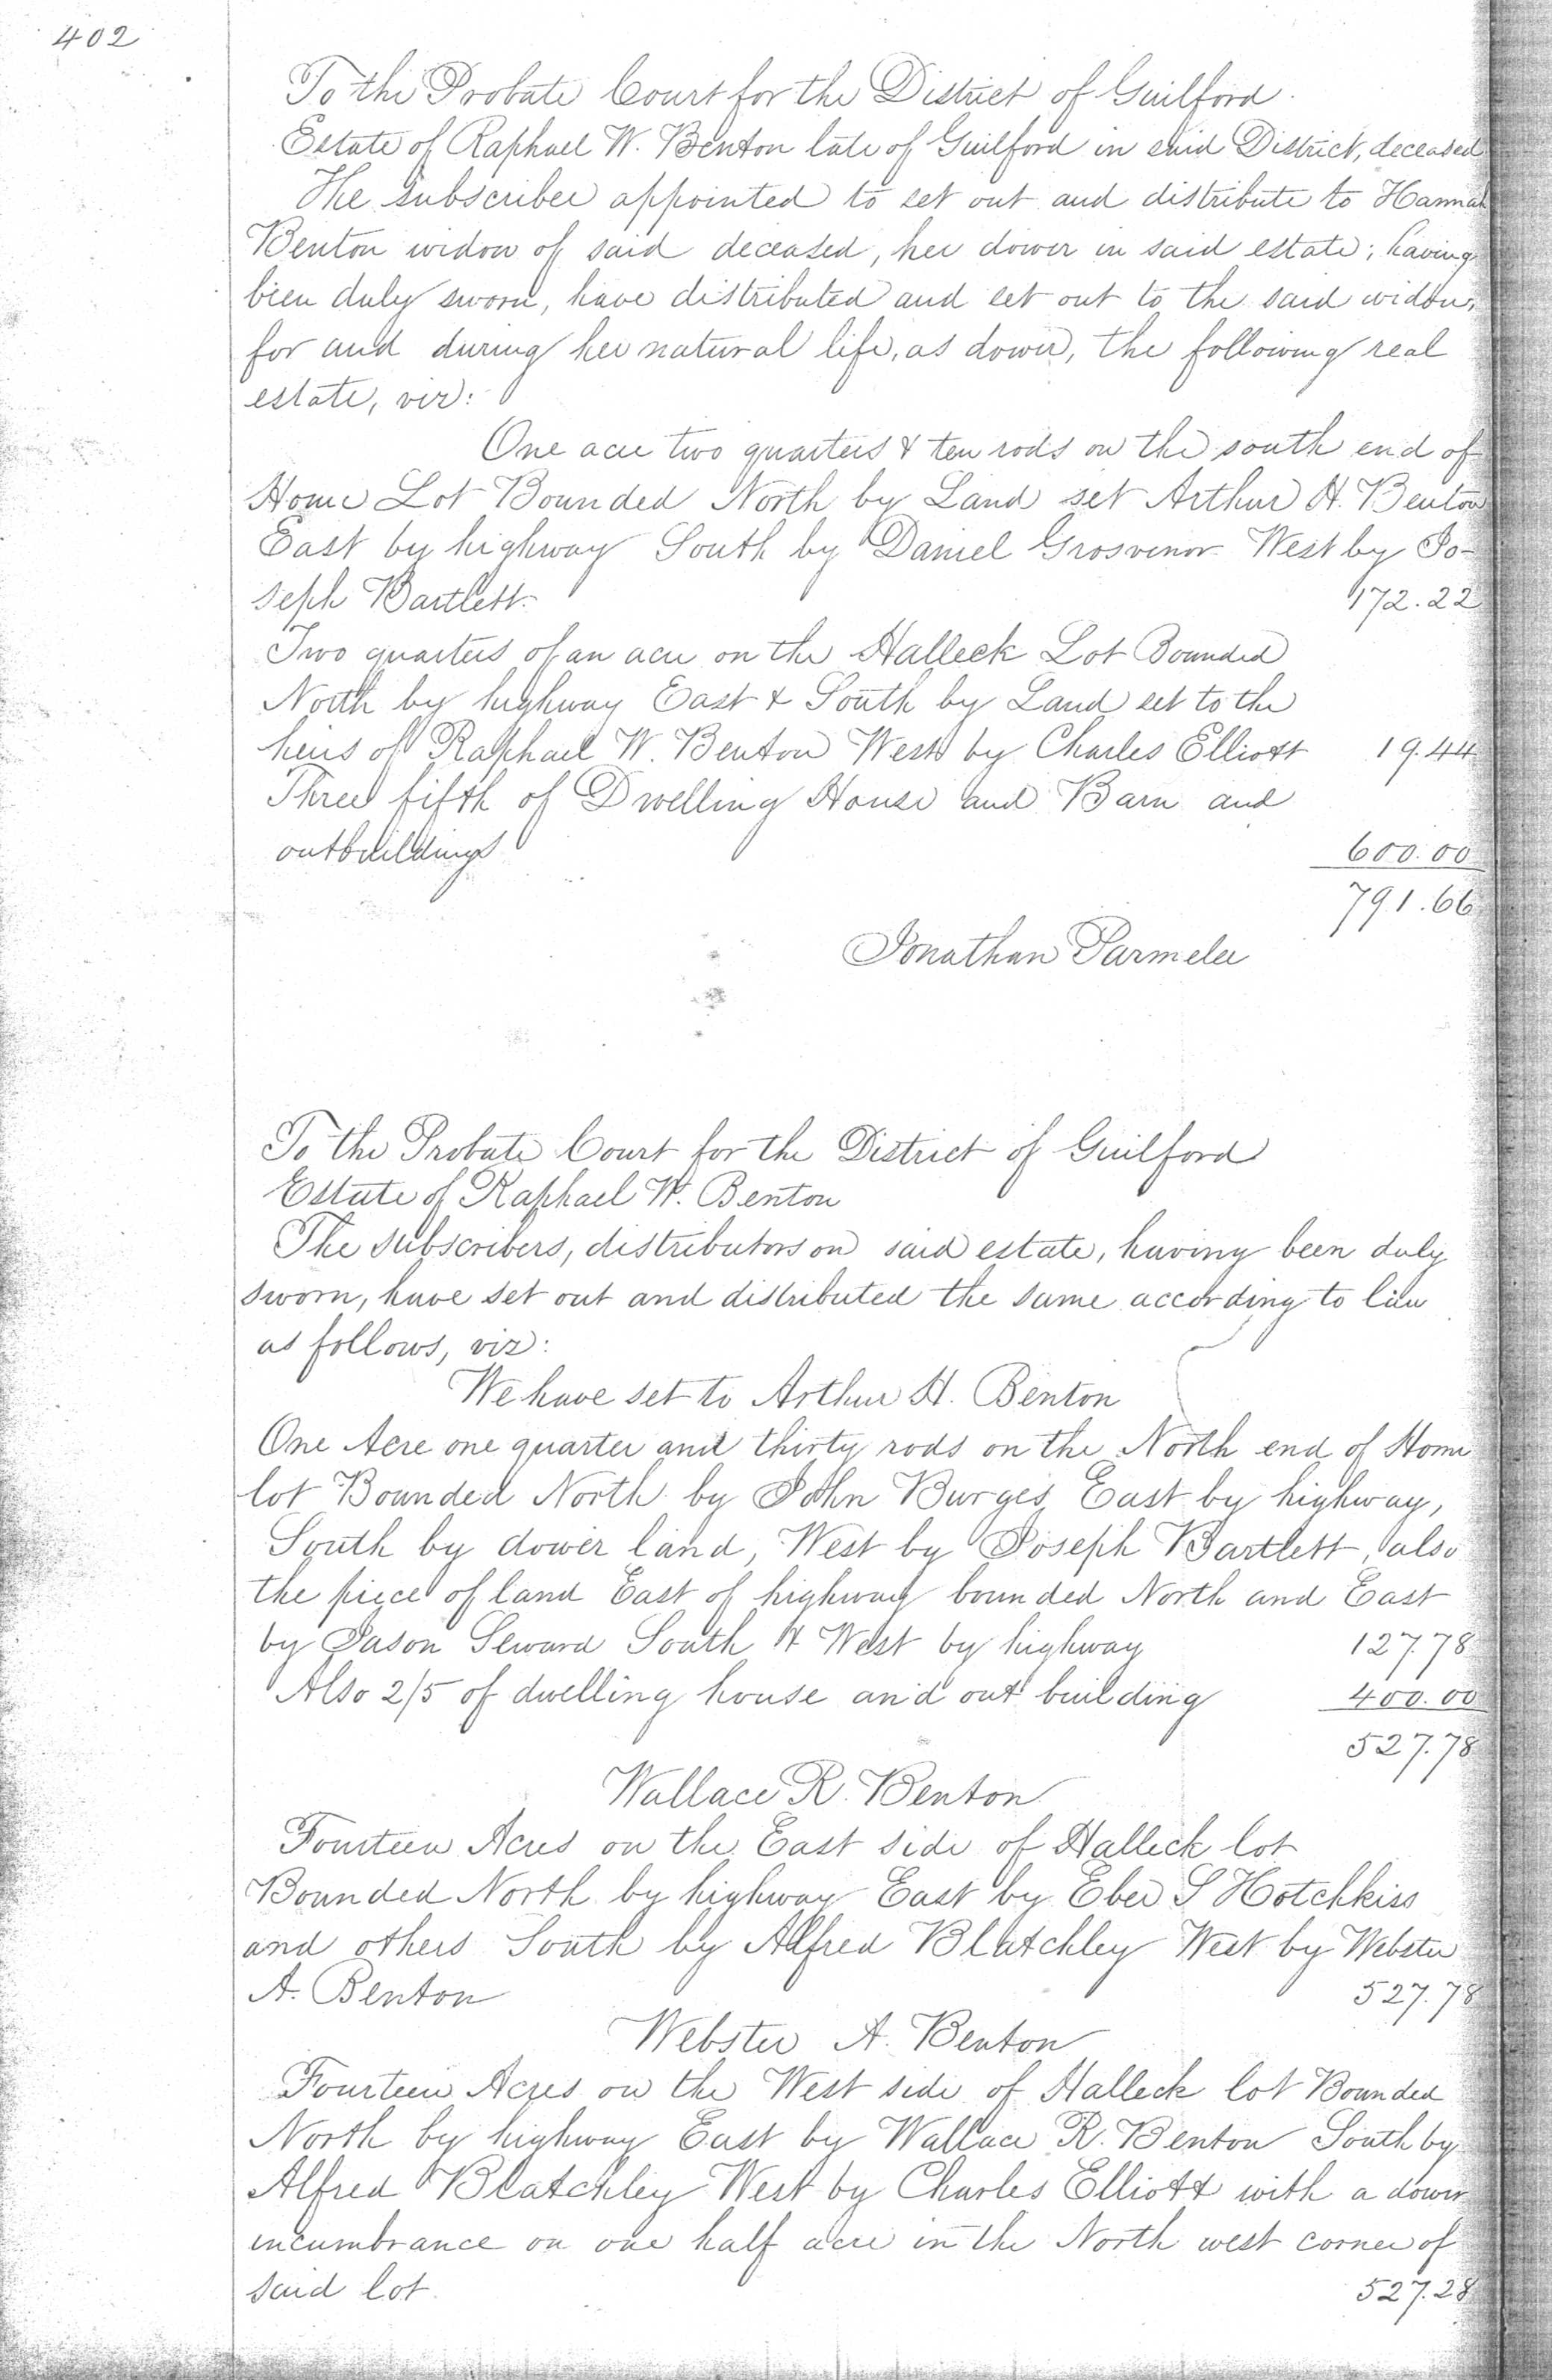 402
To the Probate Court for the District of Guilford.
Estate of Raphael W. Benton late of Guilford in said District, deceased
The subscriber appointed to set out and distribute to Hannah
Benton widow of said deceased, her dower in said estate; having
been duly sworn, have distributed and set out to the said widow,
for and during her natural life, as dower, the following real
estate, viz:
One acre two quarters & ten rods on the south end of
Home Lot Bounded North by Land set Arthur H. Benton
East by highway South by Daniel Grosvenor West by Jo-
seph Bartlett. 172.22
Two quarters of an acre on the Halleck Lot Bounded
North by highway East & South by Land set to the
heirs of Raphael W. Benton West by Charles Elliott 19.44
Three fifth of Dwelling House and Barn and
outbuildings 600.00
791.66
Jonathan Parmelee
To the Probate Court for the District of Guilford
Estate of Raphael W. Benton
The subscribers, distributors on said estate, having been duly
sworn, have set out and distributed the same according to law
as follows, viz:
We have set to Arthur H. Benton
One Acre one quarter and thirty rods on the North end of Home
lot Bounded North by John Burges East by highway,
South by dower land, West by Joseph Bartlett, also
the piece of land East of highway bounded North and East
by Jason Seward South & West by highway 127.78
Also 2/5 of dwelling house and out building 400.00
527.78
Wallace R. Benton
Fourteen Acres on the East side of Halleck lot
Bounded North by highway East by Eber S Hotchkiss
and others South by Alfred Blatchley West by Webster
A. Benton 527.78
Webster A. Benton
Fourteen Acres on the West side of Halleck lot Bounded
North by highway East by Wallace R. Benton South by
Alfred Blatchley West by Charles Elliott with a dower
incumbrance on one half acre in the North west corner of
said lot. 527.28